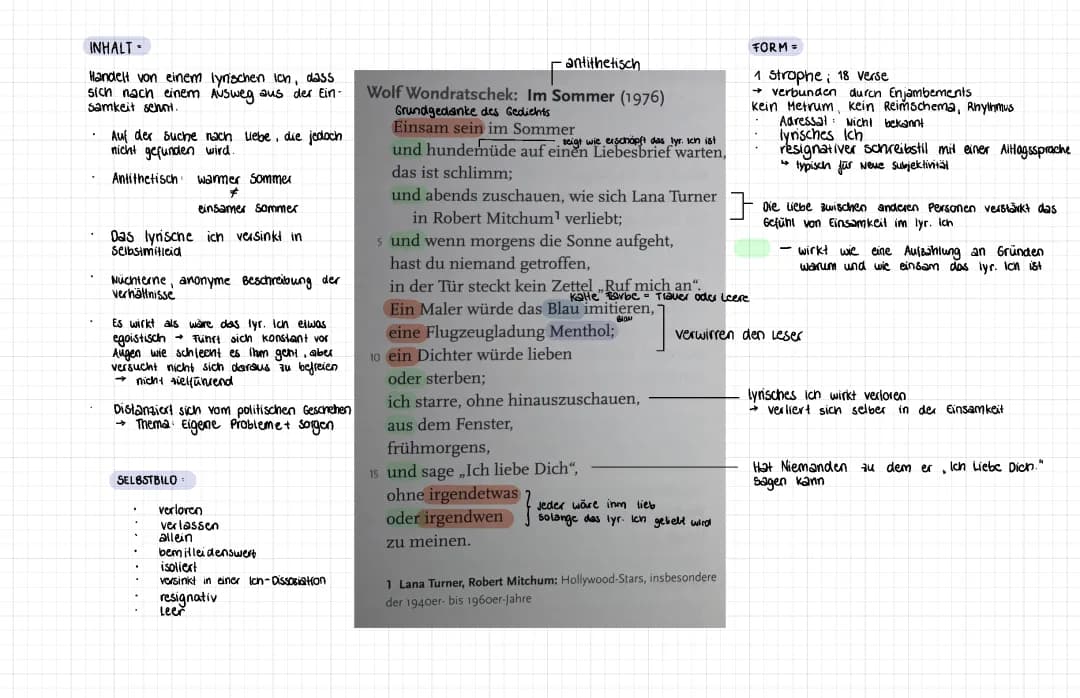 INHALT =
Handelt von einem lyrischen Ich, dass
sich nach einem Ausweg aus der Ein-
samkeit sehnt.
· Auf der Suche nach Liebe, die jedoch
nicht gefunden wird.
· Antithetisch: warmer Sommer
≠
einsamer Sommer
· Das lyrische ich versinkt in
Selbstmitleid
· Nüchterne, anonyme Beschreibung der
Verhältnisse
· Es wirkt als wäre das lyr. Ich etwas
egoistisch → Führt sich konstant vor
Augen wie schlecht es ihm geht, aber
versucht nicht sich daraus zu befreien
→ nicht zielführend
· Distanziert sich vom politischen Geschehen
→ Thema: Eigene Probleme + Sorgen
SELBSTBILD :
· verloren
· verlassen
· allein
· bemitleidenswert
· isoliert
· versinkt in einer Ich-Dissoziation
· resignativ
· leer
antithetisch
Wolf Wondratschek: Im Sommer (1976)
Grundgedanke des Gedichts
Einsam sein im Sommer
zeigt wie erschöpft das lyr. Ich ist
und hundemüde auf einen Liebesbrief warten,
das ist schlimm;
und abends zuschauen, wie sich Lana Turner
in Robert Mitchum¹ verliebt;
5 und wenn morgens die Sonne aufgeht,
hast du niemand getroffen,
in der Tür steckt kein Zettel „Ruf mich an“.
Kalte Farbe = Trauer oder Leere
Ein Maler würde das Blau imitieren,
Blau
eine Flugzeugladung Menthol;
verwirren den Leser
10 ein Dichter würde lieben
oder sterben;
ich starre, ohne hinauszuschauen,
aus dem Fenster,
frühmorgens,
15 und sage „Ich liebe Dich“,
ohne irgendetwas
oder irgendwen
zu meinen.
jeder wäre ihm lieb
solange das lyr. Ich geliebt wird
1 Lana Turner, Robert Mitchum: Hollywood-Stars, insbesondere
der 1940er- bis 1960er-Jahre
FORM =
1 Strophe ; 18 Verse
→ verbunden durch Enjambements
kein Metrum, kein Reimschema, Rhythmus
· Adressat : Nicht bekannt
· lyrisches Ich
· resignativer schreibstil mit einer Alltagssprache
↳ typisch für Neue Subjektivität
Die Liebe zwischen anderen Personen verstärkt das
Gefühl von Einsamkeit im lyr. Ich
– wirkt wie eine Aufzählung an Gründen
warum und wie einsam das lyr. Ich ist
lyrisches Ich wirkt verloren
→ verliert sich selber in der Einsamkeit
Hat Niemanden zu dem er „Ich Liebe Dich."
sagen kann